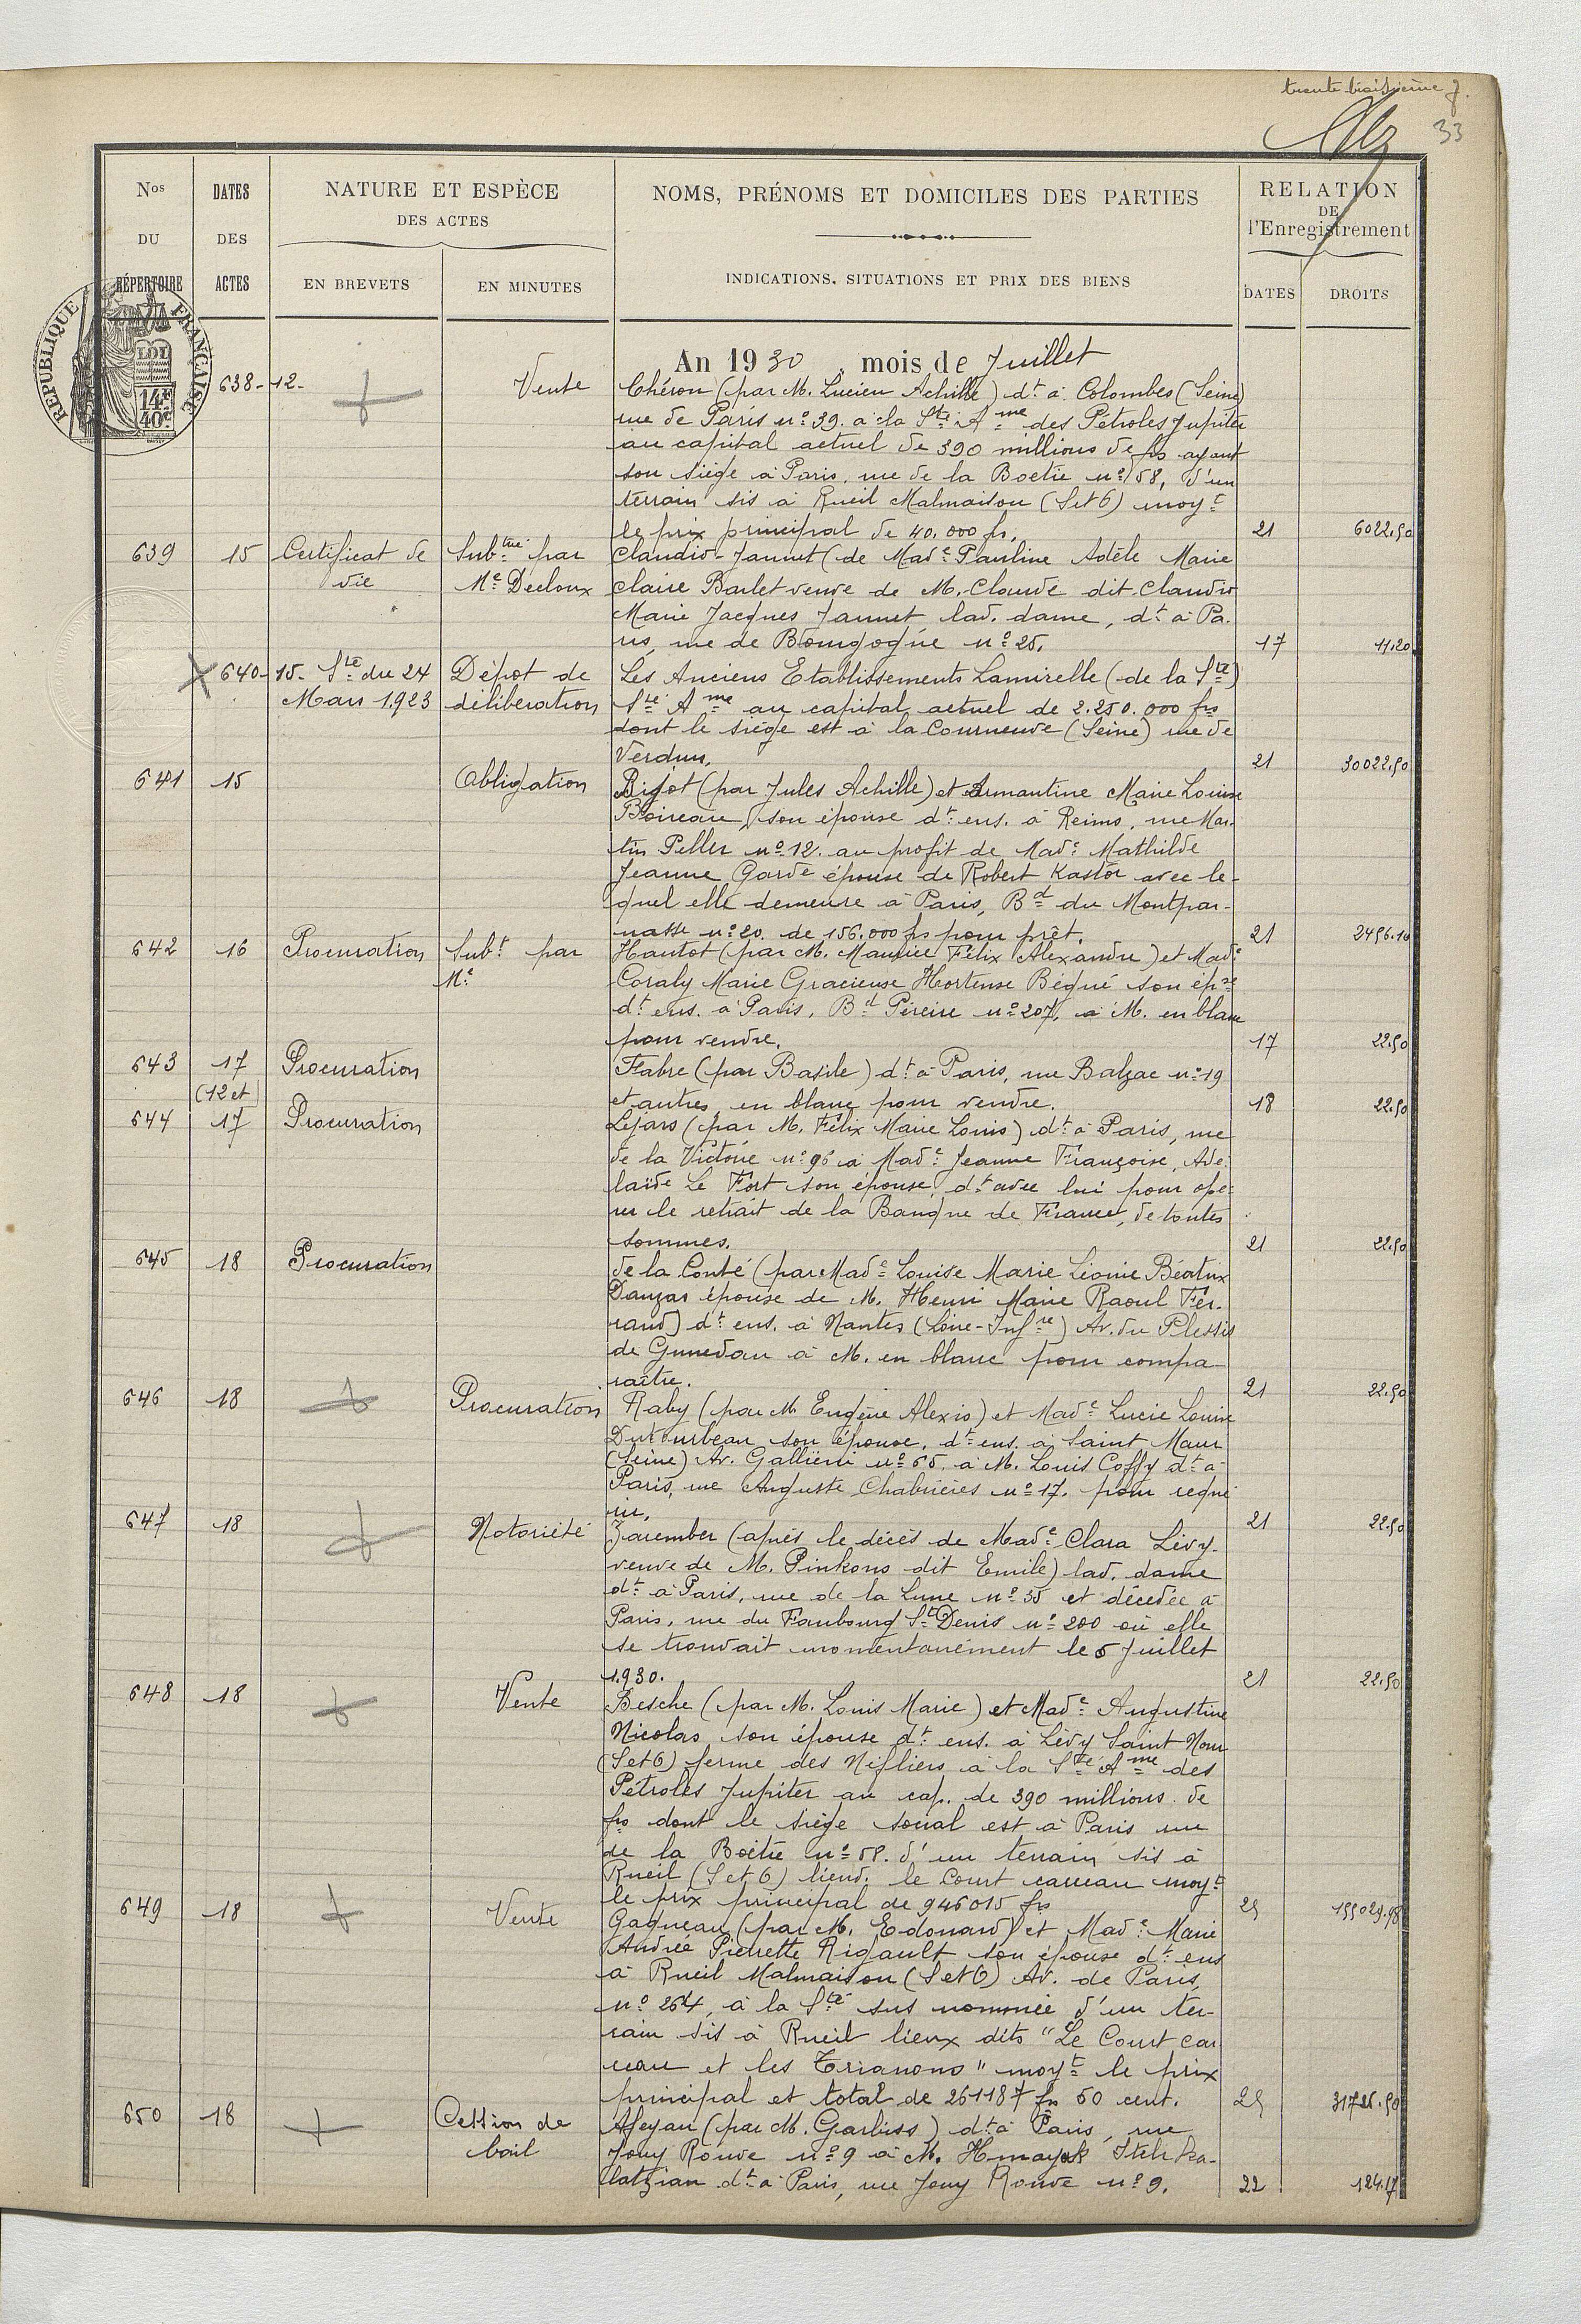 trente troisième f.
33
Nos DU RÉPERTOIRE
DATES DES ACTES
NATURE ET ESPÈCE DES ACTES
EN BREVETS
EN MINUTES
NOMS, PRÉNOMS ET DOMICILES DES PARTIES
INDICATIONS, SITUATIONS ET PRIX DES BIENS
RELATION DE l'Enregistrement
DATES
DROITS
RÉPUBLIQUE FRANÇAISE
LOI
14F 40c
An 1930 mois de Juillet
638 - 12 - Vente Chéron (par M. Lucien Achille) dt à Colombes (Seine)
rue de Paris no 39. à la Sté Ame des Pétroles Jupiter
au capital actuel de 390 millions de frs ayant
son siège à Paris, rue de la Boetie no 58, d'un
terrain sis à Rueil Malmaison (S et O) moyt
le prix principal de 40.000 frs. 21 6022.50
639 15 Certificat de Subtué par Claudio-Jannet (de Made Pauline Adèle Marie
vie Me Decloux Claire Barlet veuve de M. Claude dit Claudio
Marie Jacques Jannet, lad. dame, dt à Pa-
ris, rue de Bourgogne no 25. 17 11.20
640 - 15 - Sté du 24 Dépot de Les Anciens Etablissements Lamirelle (de la Sté)
Mars 1923 délibération Sté Ame au capital actuel de 2.250.000 frs
dont le siège est à la Courneuve (Seine) rue de
Verdun. 21 30022.50
641 15 Obligation Bigot (par Jules Achille) et Armantine Marie Louise
Boireau, son épouse dt ens. à Reims, rue Mar-
tin Peller no 12. au profit de Made Mathilde
Jeanne Garde épouse de Robert Kastor avec le-
quel elle demeure à Paris, Bd du Montpar-
nasse no 20. de 156.000 frs pour prêt. 21 2496.10
642 16 Procuration Subt par Hautot (par M. Maurice Félix Alexandre) et Made
Me Coraly Marie Gracieuse Hortense Béqué son épse
dt ens. à Paris, Bd Péreire no 207, à M. en blanc
pour vendre. 17 22.50
643 17 Procuration Fabre (par Basile) dt à Paris, rue Balzac no 19
(12 et et autres, en blanc pour vendre. 18 22.50
644 17 Procuration Lejars (par M. Félix Marie Louis) dt à Paris, rue
de la Victoire no 96 à Made Jeanne Françoise, Adé-
laïde Le Fort son épouse, dt avec lui pour opé-
rer le retrait de la Banque de France, de toutes
sommes. 21 22.50
645 18 Procuration de la Conté (par Made Louise Marie Léonie Béatrix
Danzas épouse de M. Henri Marie Raoul Fer-
rand) dt ens. à Nantes (Loire-Infre) Av. du Plessis
de à M. en blanc pour compa-
raître. 21 22.50
646 18 Procuration Raby (par M Eugène Alexis) et Made Lucie Louise
Dutourbeau son épouse, dt ens. à Saint Maur
(Seine) Av. Galliéni no 65. à M. Louis Coffy dt à
Paris, rue Auguste Chabrières no 17. pour requé
rir. 21 22.50
647 18 Notoriété Zarember (après le décès de Made Clara Lévy-
veuve de M. Pinkons dit Emile) lad. dame
dt à Paris, rue de la Lune no 35 et décédée à
Paris, rue du Faubourg St Denis no 200 où elle
se trouvait momentanément le 5 Juillet
1930. 21 22.50
648 18 Vente Besche (par M. Louis Marie) et Made Augustine
Nicolas son épouse dt ens. à Lévy Saint Nom
(S et O) ferme des Néfliers à la Sté Ame des
Pétroles Jupiter au cap. de 390 millions de
frs dont le siège social est à Paris rue
de la Boétie no 58. d'un terrain sis à
Rueil (S et O) lieud. le Court carreau moyt
le prix principal de 946015 frs 25
649 18 Vente Gagneau (par M. Edouard) et Made Marie
Andrée Pierrette Rigault son épouse dt ens
à Rueil Malmaison (S et O) Av. de Paris,
no 264, à la Sté sus nommée d'un ter-
rain sis à Rueil lieux dits "Le Court car
reau et les Trianons" moyt le prix
principal et total de 261187 frs 50 cent. 25 31726.50
650 18 Cession de Afeyan (par M. Garbiss) dt à Paris, rue
bail Jouy Rouve no 9 à M. Hmayak Itchka-
latzian dt à Paris, rue Jouy Rouve no 9. 22 124.17